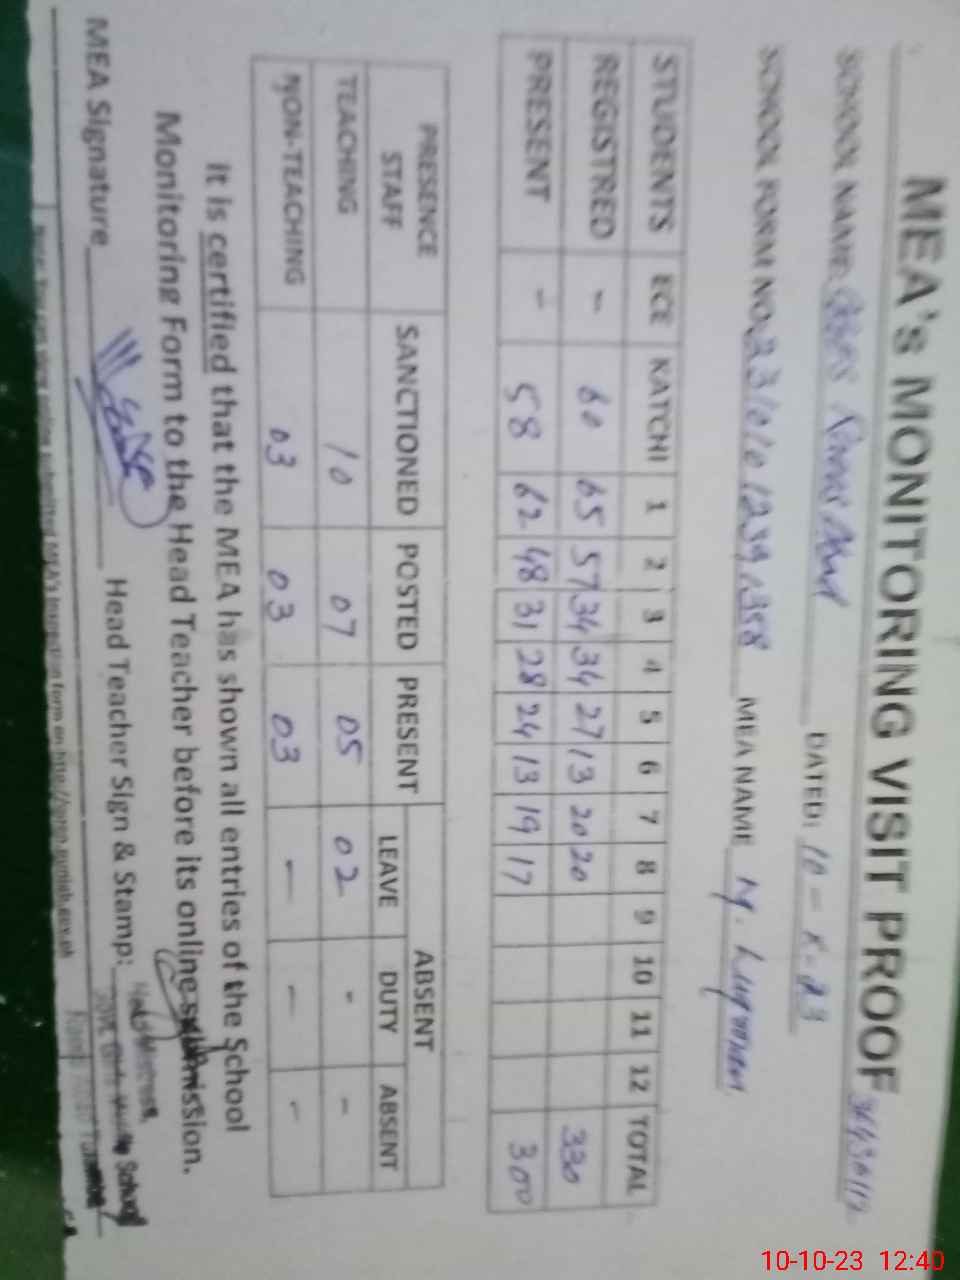 MEA's MONITORING VISIT PROOF
SCHOOL NAME: DATED: 10-X-23
SCHOOL FORM NO. MEA NAME M. Luqman
STUDENTS ECE KATCHI 1 2 3 4 5 6 7 8 9 10 11 12 TOTAL
REGISTRED - 60 65 57 34 34 27 13 20 20 330
PRESENT - 58 62 48 31 28 24 13 19 17 300
PRESENCE STAFF SANCTIONED POSTED PRESENT ABSENT
LEAVE DUTY ABSENT
TEACHING 10 07 05 02 - -
NON-TEACHING 03 03 03 - - -
It is certified that the MEA has shown all entries of the School
Monitoring Form to the Head Teacher before its online submission.
MEA Signature Head Teacher Sign & Stamp:
Head Mistress
School
10-10-23 12:40